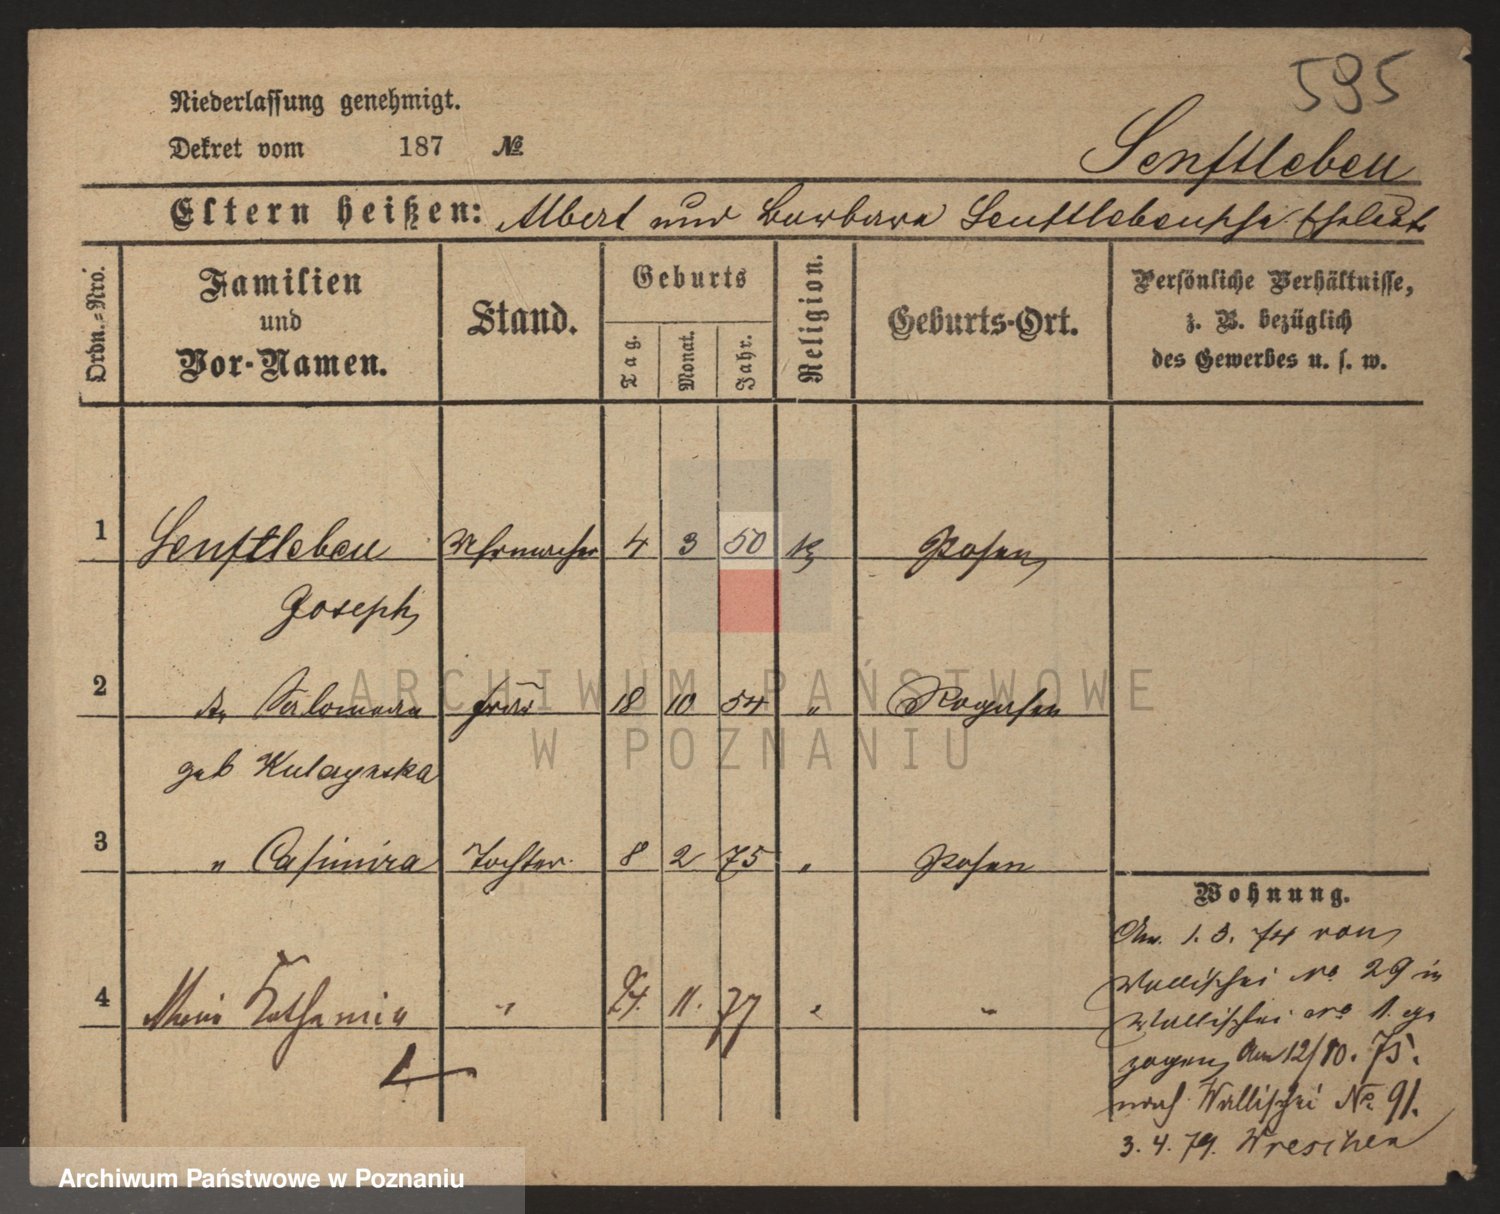 595
Niederlassung genehmigt.
Dekret vom 187 №
Senftleben
Eltern heißen: Albert und Barbara Senftlebensche Eheleute
Ordn.-Nro.
Familien und Vor-Namen.
Stand.
Geburts
Tag.
Monat.
Jahr.
Religion.
Geburts-Ort.
Persönliche Verhältnisse,
z. B. bezüglich
des Gewerbes u. s. w.
1 Senftleben Uhrmacher 4 3 50 K Posen
Joseph
2 Salomea Frau 18 10 54 " Rogasen
geb
3 " Casimira Tochter 8 2 75 " Posen
Wohnung.
4 Katharina " 24. 11. 77 " "
Am 1. 3. 74 von
Wallischei No 29 in
Wallischei No 1. ge
zogen, Am 12/10. 75.
nach Wallischei No 91.
3. 4. 79. Wreschen
ARCHIWUM PAŃSTWOWE
W POZNANIU
Archiwum Państwowe w Poznaniu